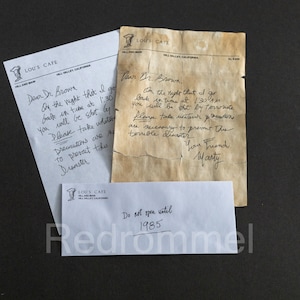 LOU'S CAFE
HILL VALLEY, CALIFORNIA
Dear Dr. Brown,
On the night that I go
back in time at 1:30 AM
you will be shot by
Please take whatever
precautions are
to prevent this
Disaster.
LOU'S CAFE
HILL VALLEY, CALIFORNIA
Dear Dr. Brown,
On the night that I go
back in time at 1:30 AM
you will be shot by terrorists
Please take whatever precautions
are necessary to prevent this
terrible disaster.
Your Friend
Marty
LOU'S CAFE
HILL VALLEY, CALIFORNIA
Do not open until
1985
Redrommel